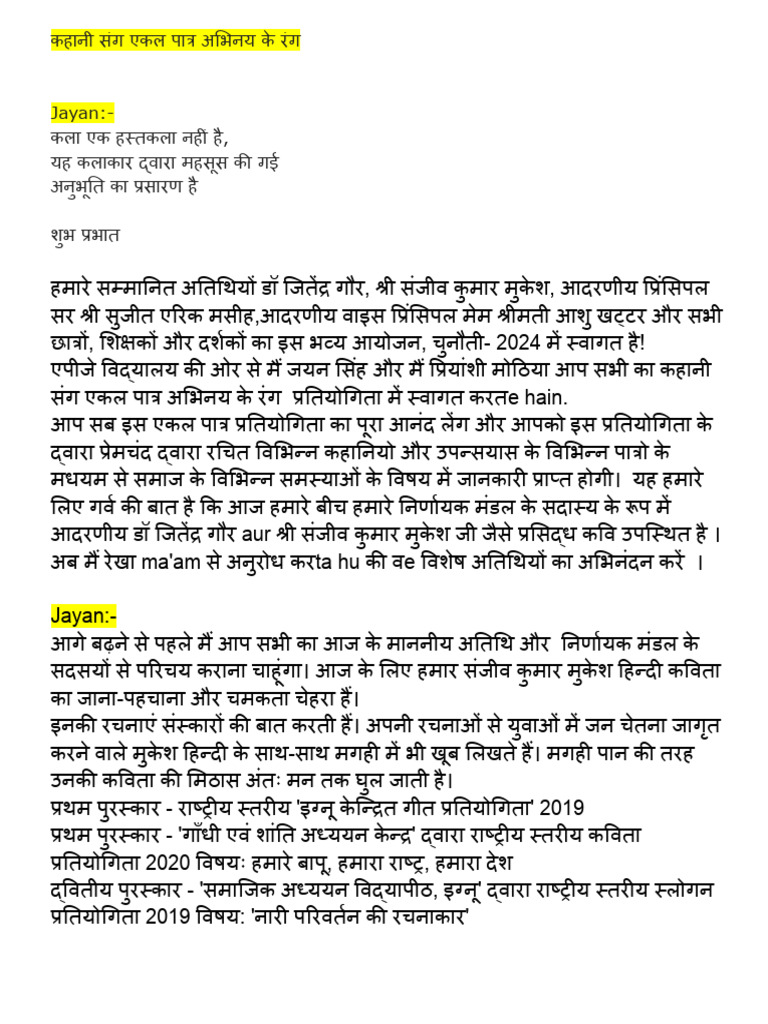 कहानी संग एकल पात्र अभिनय के रंग
Jayan:-
कला एक हस्तकला नहीं है,
यह कलाकार द्वारा महसूस की गई
अनुभूति का प्रसारण है
शुभ प्रभात
हमारे सम्मानित अतिथियों डॉ जितेंद्र गौर, श्री संजीव कुमार मुकेश, आदरणीय प्रिंसिपल
सर श्री सुजीत एरिक मसीह,आदरणीय वाइस प्रिंसिपल मेम श्रीमती आशु खट्टर और सभी
छात्रों, शिक्षकों और दर्शकों का इस भव्य आयोजन, चुनौती- 2024 में स्वागत है!
एपीजे विद्यालय की ओर से मैं जयन सिंह और मैं प्रियांशी मोठिया आप सभी का कहानी
संग एकल पात्र अभिनय के रंग प्रतियोगिता में स्वागत करतe hain.
आप सब इस एकल पात्र प्रतियोगिता का पूरा आनंद लेंग और आपको इस प्रतियोगिता के
द्वारा प्रेमचंद द्वारा रचित विभिन्न कहानियो और उपन्सयास के विभिन्न पात्रो के
मधयम से समाज के विभिन्न समस्याओं के विषय में जानकारी प्राप्त होगी। यह हमारे
लिए गर्व की बात है कि आज हमारे बीच हमारे निर्णायक मंडल के सदास्य के रूप में
आदरणीय डॉ जितेंद्र गौर aur श्री संजीव कुमार मुकेश जी जैसे प्रसिद्ध कवि उपस्थित है ।
अब मैं रेखा ma'am से अनुरोध करta hu की वe विशेष अतिथियों का अभिनंदन करें ।
Jayan:-
आगे बढ़ने से पहले मैं आप सभी का आज के माननीय अतिथि और निर्णायक मंडल के
सदसयों से परिचय कराना चाहूंगा। आज के लिए हमार संजीव कुमार मुकेश हिन्दी कविता
का जाना-पहचाना और चमकता चेहरा हैं।
इनकी रचनाएं संस्कारों की बात करती हैं। अपनी रचनाओं से युवाओं में जन चेतना जागृत
करने वाले मुकेश हिन्दी के साथ-साथ मगही में भी खूब लिखते हैं। मगही पान की तरह
उनकी कविता की मिठास अंतः मन तक घुल जाती है।
प्रथम पुरस्कार - राष्ट्रीय स्तरीय 'इग्नू केन्द्रित गीत प्रतियोगिता' 2019
प्रथम पुरस्कार - 'गाँधी एवं शांति अध्ययन केन्द्र' द्वारा राष्ट्रीय स्तरीय कविता
प्रतियोगिता 2020 विषयः हमारे बापू, हमारा राष्ट्र, हमारा देश
द्वितीय पुरस्कार - 'समाजिक अध्ययन विद्यापीठ, इग्नू' द्वारा राष्ट्रीय स्तरीय स्लोगन
प्रतियोगिता 2019 विषय: 'नारी परिवर्तन की रचनाकार'